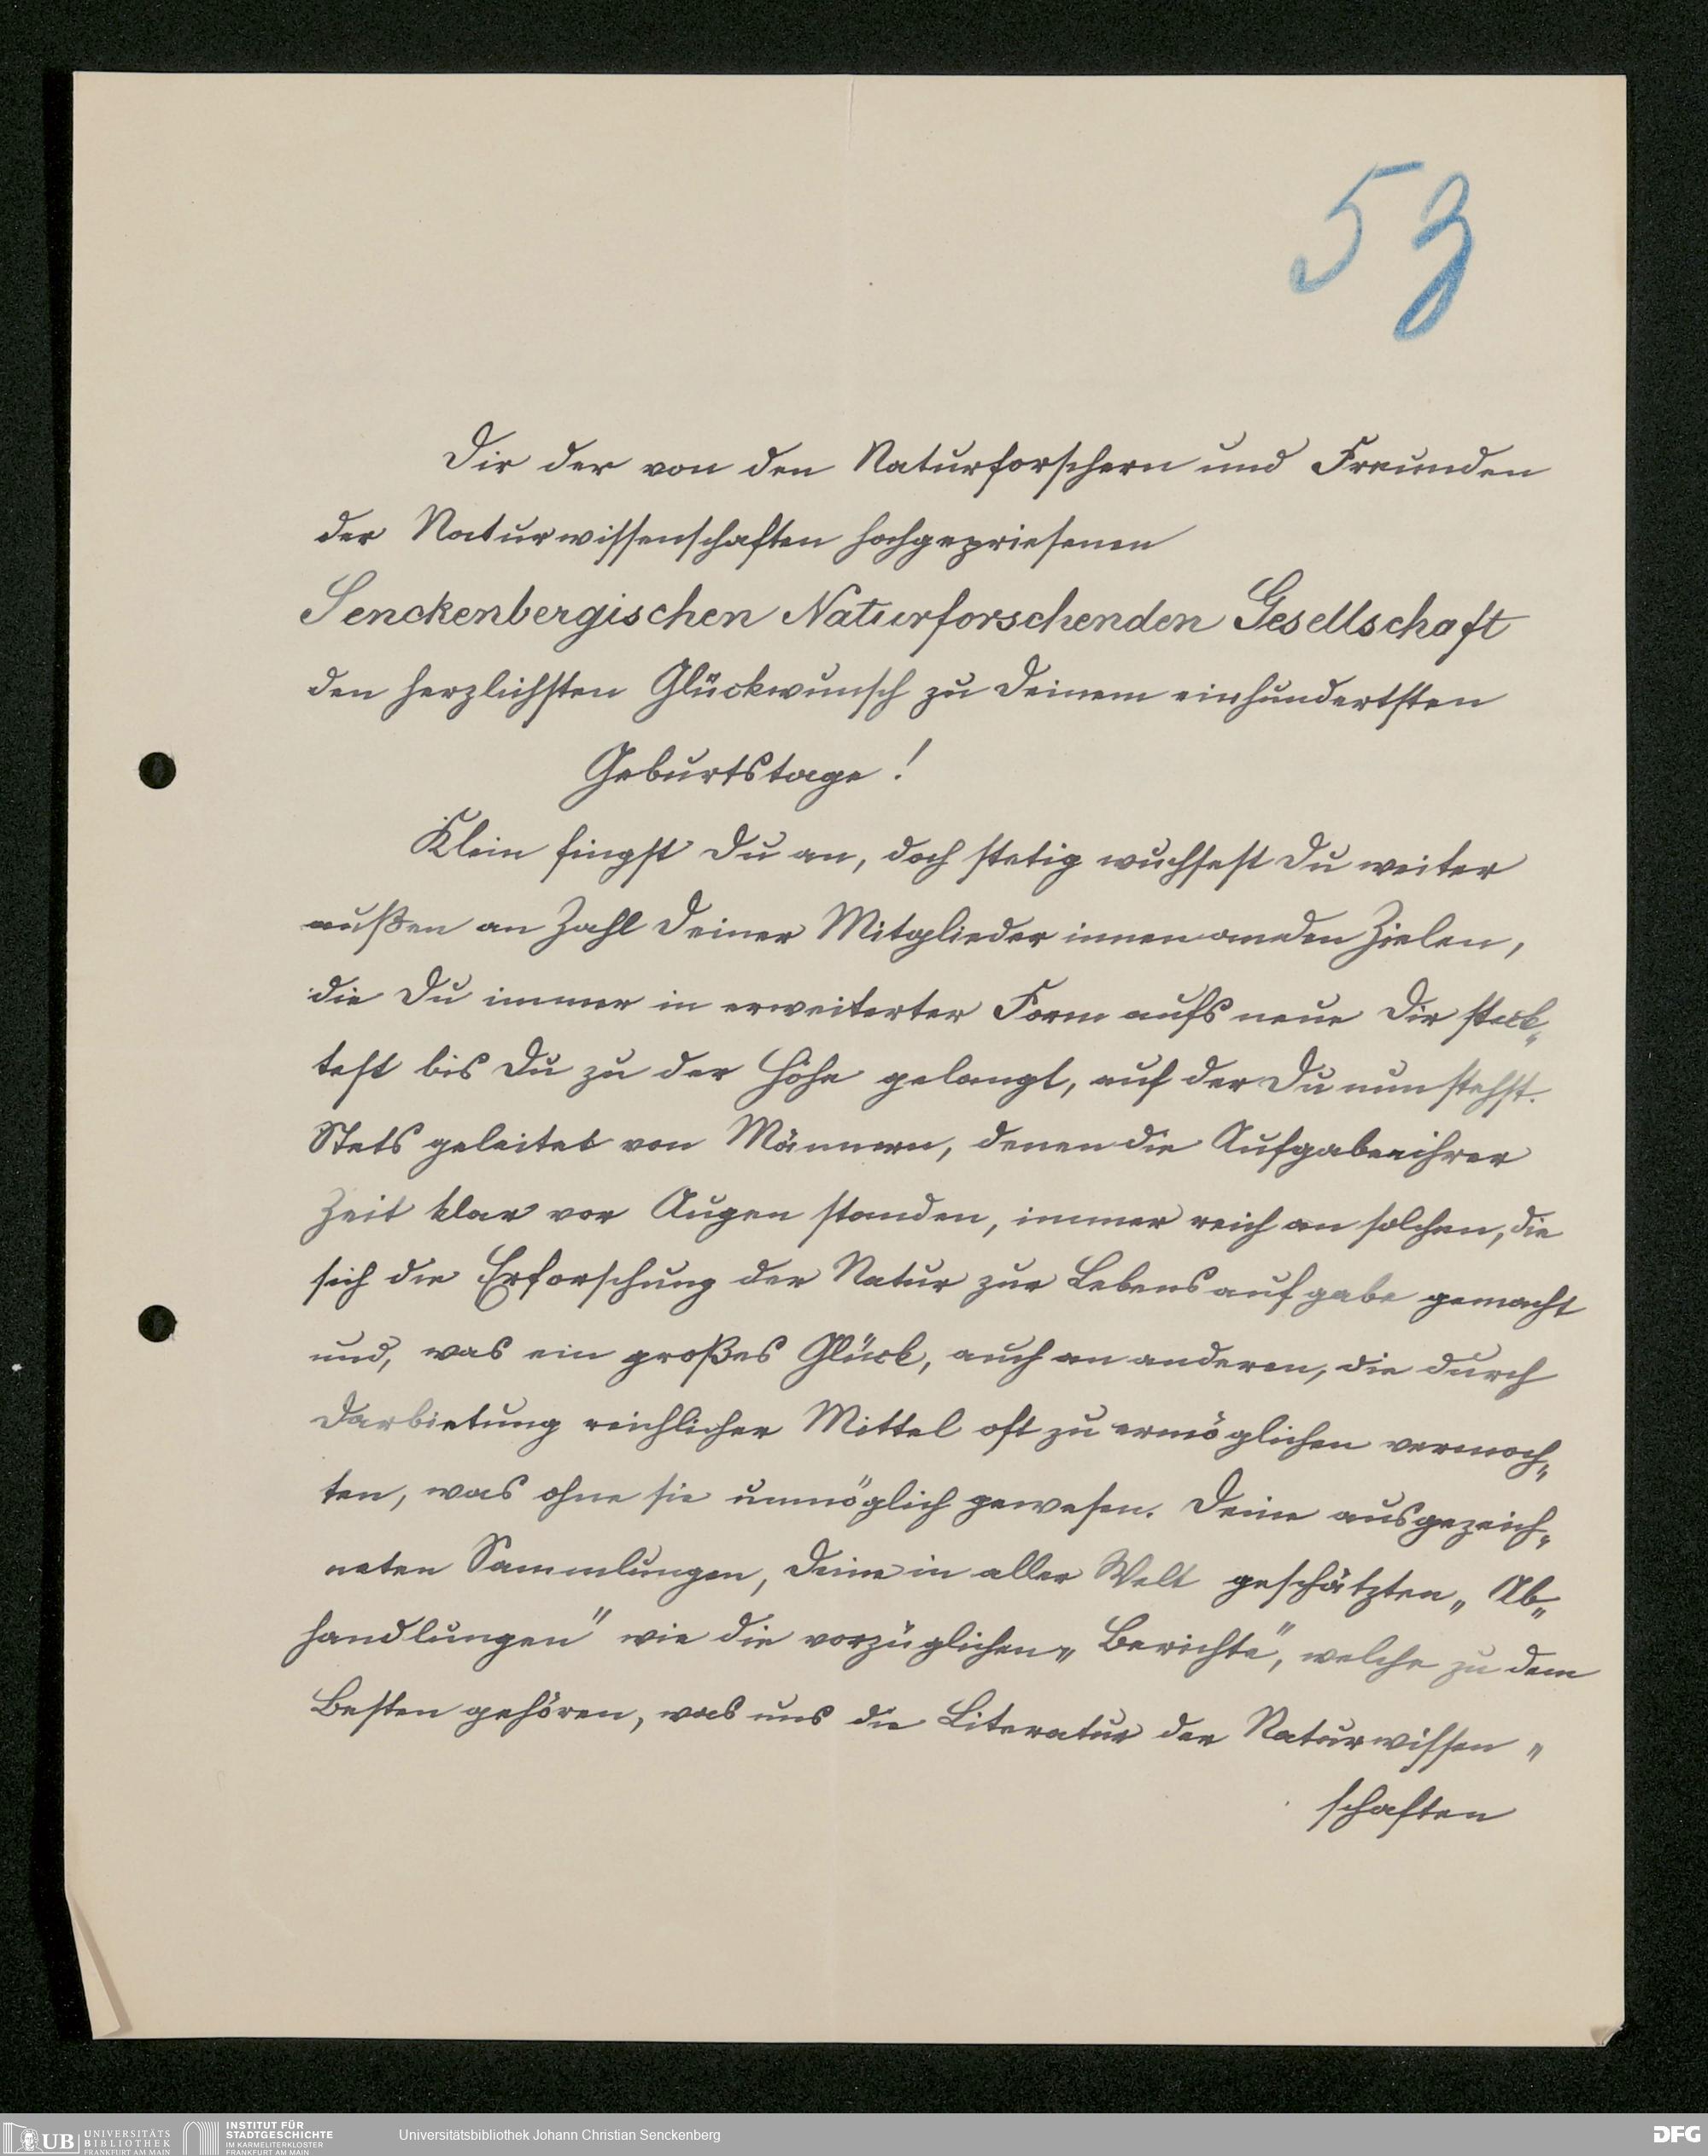 53
Dir der von den Naturforschern und Freunden
der Naturwissenschaften hochgepriesenen
Senckenbergischen Naturforschenden Gesellschaft
den herzlichsten Glückwunsch zu Deinem einhundertsten
Geburtstage!
Klein fingst Du an, doch stetig wuchsest Du weiter
außen an Zahl Deiner Mitglieder innen an den Zielen,
die Du immer in erweiterter Form aufs neue Dir steck„
test bis Du zu der Höhe gelangt, auf der Du nun stehst.
Stets geleitet von Männern, denen die Aufgaben ihrer
Zeit klar vor Augen standen, immer reich an solchen, die
sich die Erforschung der Natur zur Lebensaufgabe gemacht
und, was ein großes Glück, auch an anderen, die durch
Darbietung reichlicher Mittel oft zu ermöglichen vermoch„
ten, was ohne sie unmöglich gewesen. Deine ausgezeich„
neten Sammlungen, Deine in aller Welt geschätzten „Ab„
handlungen" wie die vorzüglichen „Berichte", welche zu dem
Besten gehören, was uns die Literatur der Naturwissen„
schaften
UB UNIVERSITÄTS
BIBLIOTHEK
FRANKFURT AM MAIN
INSTITUT FÜR
STADTGESCHICHTE
IM KARMELITERKLOSTER
FRANKFURT AM MAIN
Universitätsbibliothek Johann Christian Senckenberg
DFG